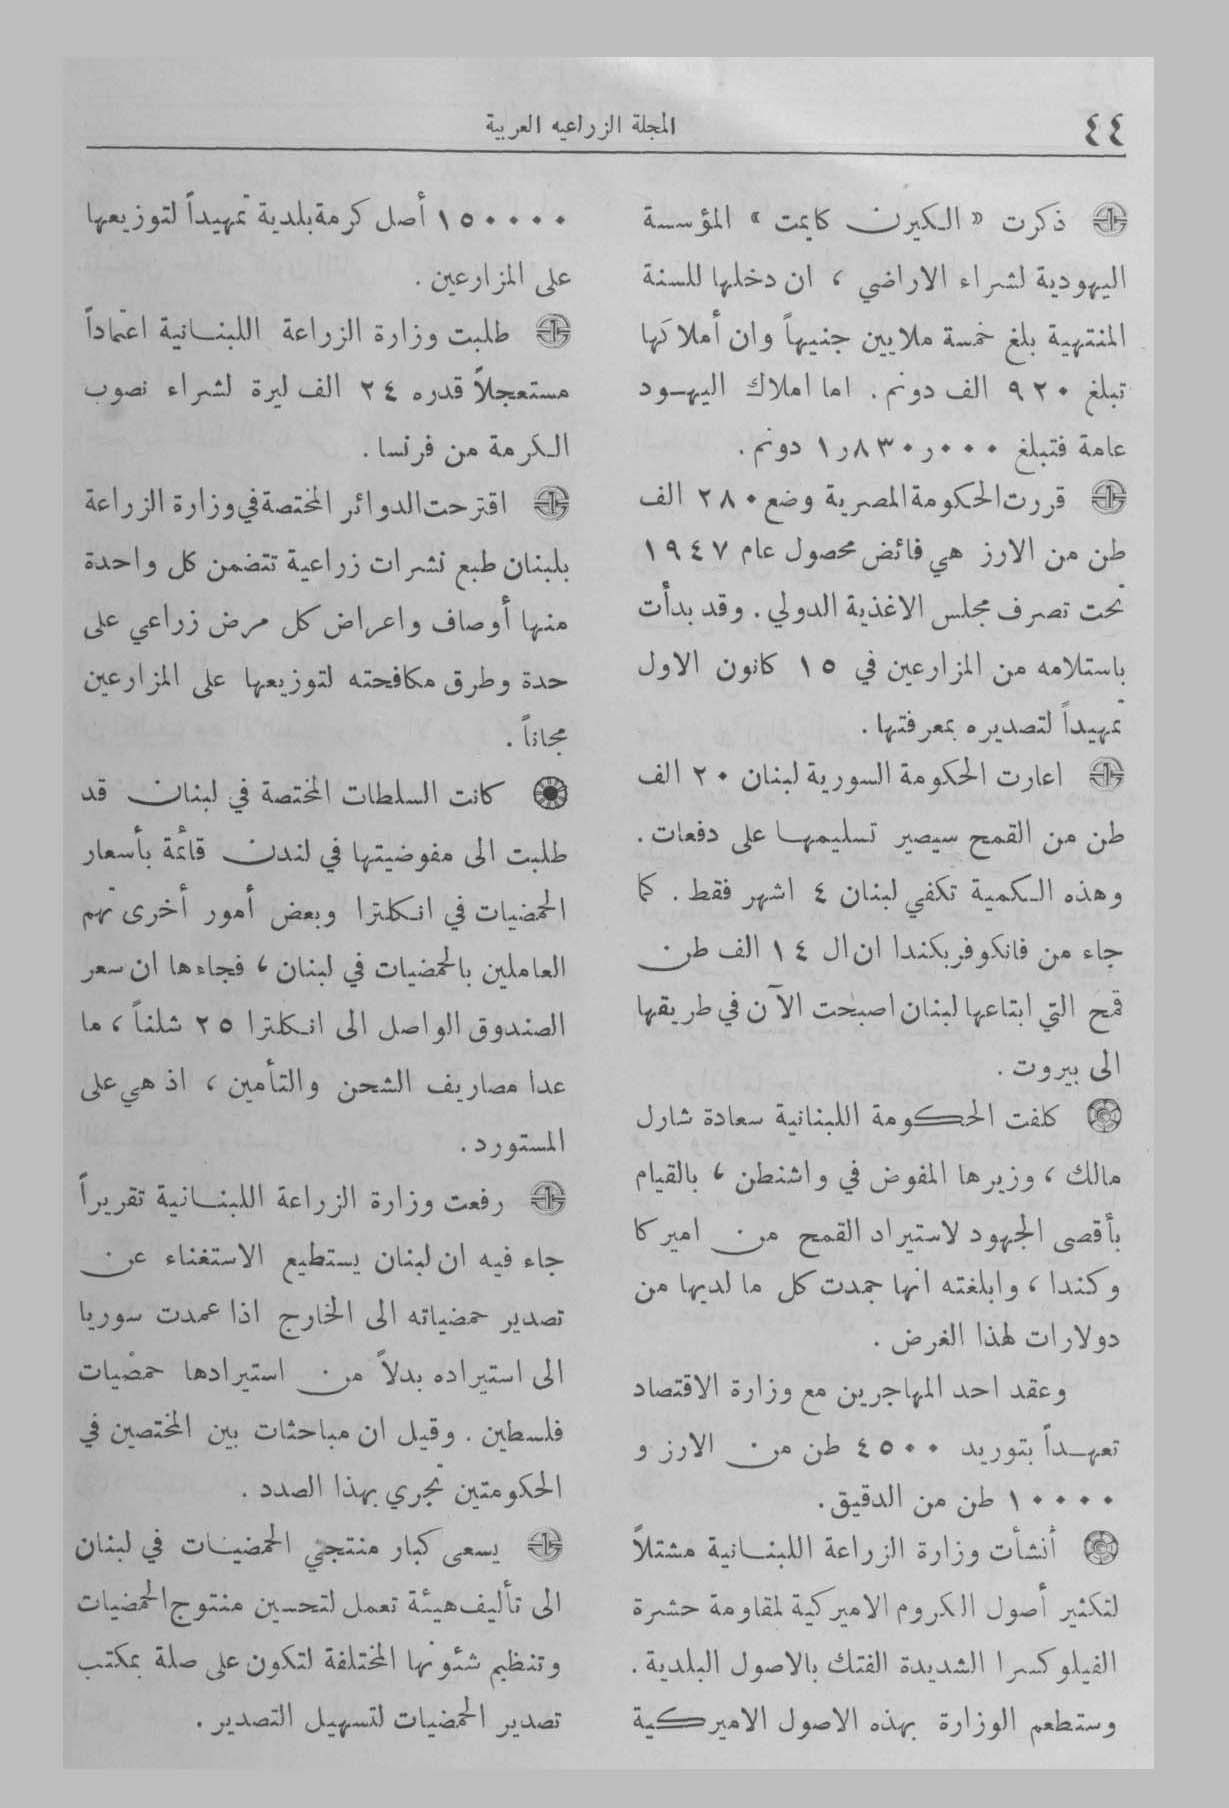 ٤٤
المجلة الزراعيه العربية
ذكرت « الكيرن كايمت » المؤسسة
اليهودية لشراء الاراضي ، ان دخلها للسنة
المنتهية بلغ خمسة ملايين جنيهاً وان أملاكها
تبلغ ٩٢٠ الف دونم. اما املاك اليهود
عامة فتبلغ ٠٠٠ر٨٣٠ر١ دونم.
قررت الحكومة المصرية وضع ٢٨٠ الف
طن من الارز هي فائض محصول عام ١٩٤٧
تحت تصرف مجلس الاغذية الدولي. وقد بدأت
باستلامه من المزارعين في ١٥ كانون الاول
تمهيداً لتصديره بمعرفتها.
اعارت الحكومة السورية لبنان ٢٠ الف
طن من القمح سيصير تسليمها على دفعات.
وهذه الكمية تكفي لبنان ٤ اشهر فقط. كما
جاء من فانكوفر بكندا ان ال ١٤ الف طن
قمح التي ابتاعها لبنان اصبحت الآن في طريقها
الى بيروت.
كلفت الحكومة اللبنانية سعادة شارل
مالك ، وزيرها المفوض في واشنطن ، بالقيام
بأقصى الجهود لاستيراد القمح من اميركا
وكندا ، وابلغته انها جمدت كل ما لديها من
دولارات لهذا الغرض.
وعقد احد المهاجرين مع وزارة الاقتصاد
تعهداً بتوريد ٤٥٠٠ طن من الارز و
١٠٠٠٠ طن من الدقيق.
أنشأت وزارة الزراعة اللبنانية مشتلاً
لتكثير أصول الكروم الاميركية لمقاومة حشرة
الفيلوكسرا الشديدة الفتك بالاصول البلدية.
وستطعم الوزارة بهذه الاصول الاميركية
١٥٠٠٠٠ أصل كرمة بلدية تمهيداً لتوزيعها
على المزارعين.
طلبت وزارة الزراعة اللبنانية اعتماداً
مستعجلاً قدره ٢٤ الف ليرة لشراء نصوب
الكرمة من فرنسا.
اقترحت الدوائر المختصة في وزارة الزراعة
بلبنان طبع نشرات زراعية تتضمن كل واحدة
منها أوصاف واعراض كل مرض زراعي على
حدة وطرق مكافحته لتوزيعها على المزارعين
مجاناً.
كانت السلطات المختصة في لبنان قد
طلبت الى مفوضيتها في لندن قائمة بأسعار
الحمضيات في انكلترا وبعض أمور أخرى تهم
العاملين بالحمضيات في لبنان ، فجاءها ان سعر
الصندوق الواصل الى انكلترا ٢٥ شلناً ، ما
عدا مصاريف الشحن والتأمين ، اذ هي على
المستورد.
رفعت وزارة الزراعة اللبنانية تقريراً
جاء فيه ان لبنان يستطيع الاستغناء عن
تصدير حمضياته الى الخارج اذا عمدت سوريا
الى استيراده بدلاً من استيرادها حمضيات
فلسطين. وقيل ان مباحثات بين المختصين في
الحكومتين تجري بهذا الصدد.
يسعى كبار منتجي الحمضيات في لبنان
الى تأليف هيئة تعمل لتحسين منتوج الحمضيات
وتنظيم شئونها المختلفة لتكون على صلة بمكتب
تصدير الحمضيات لتسهيل التصدير.